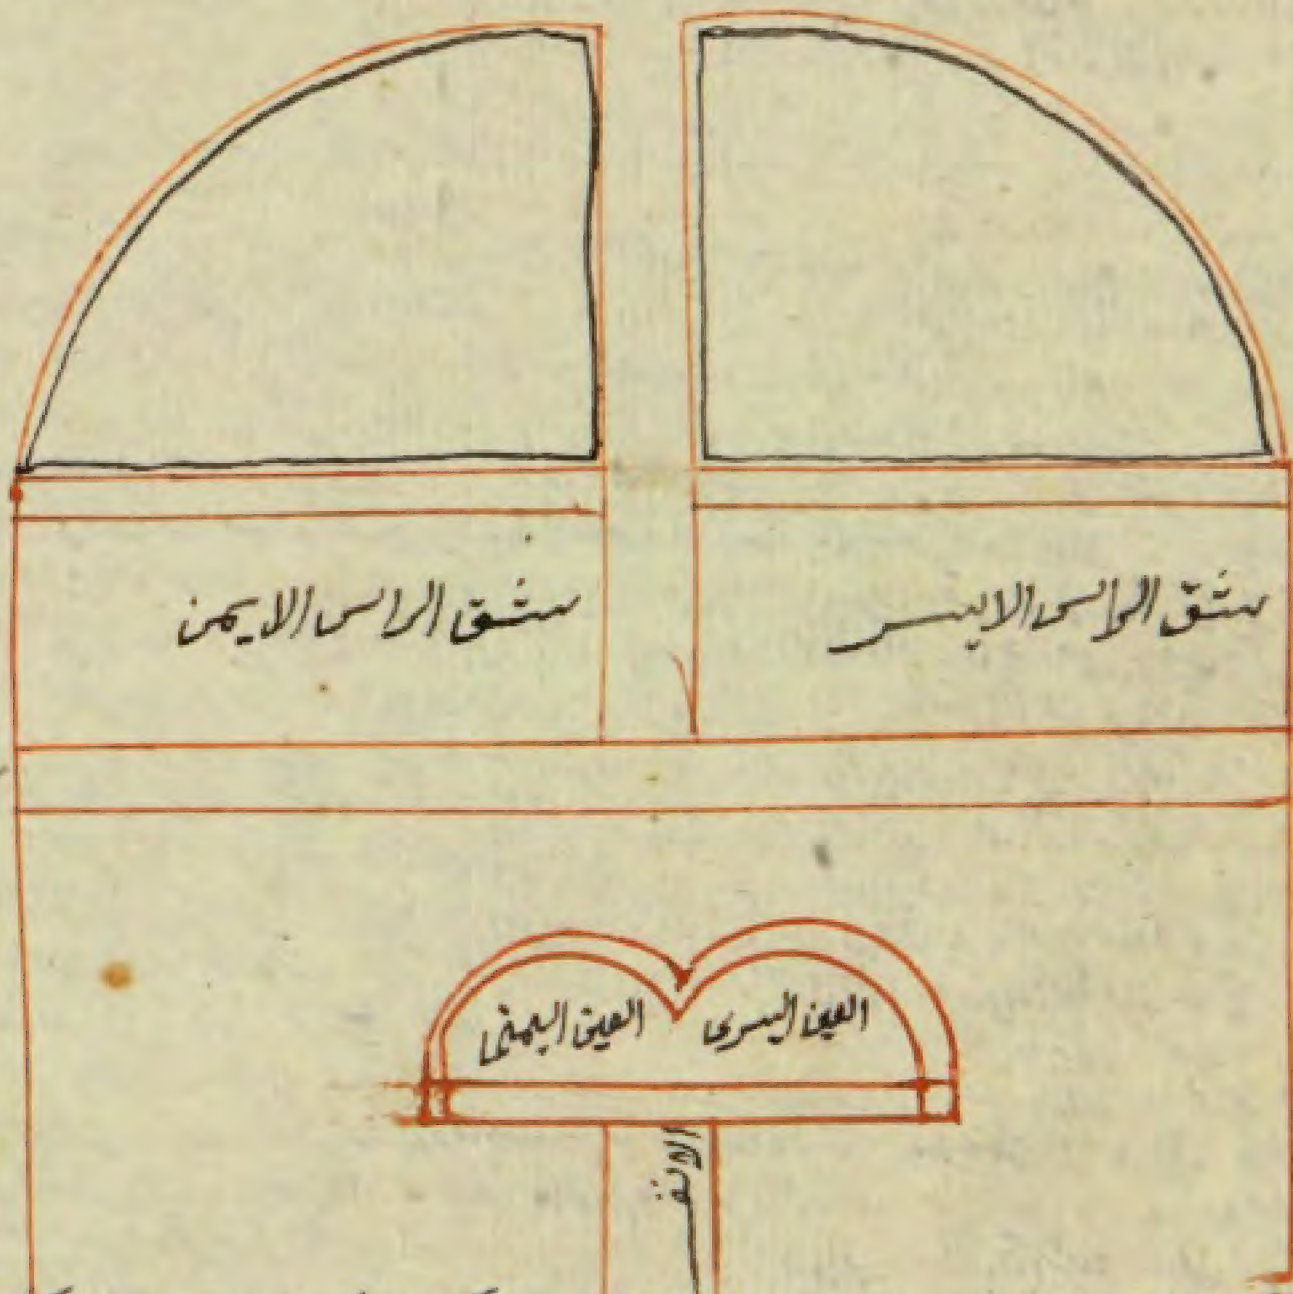 شق الراس الايسر
شق الراس الايمن
العين اليسرى
العين اليمنى
الانف